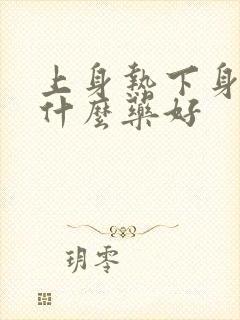 上身熱下身
什麼藥好
玥零